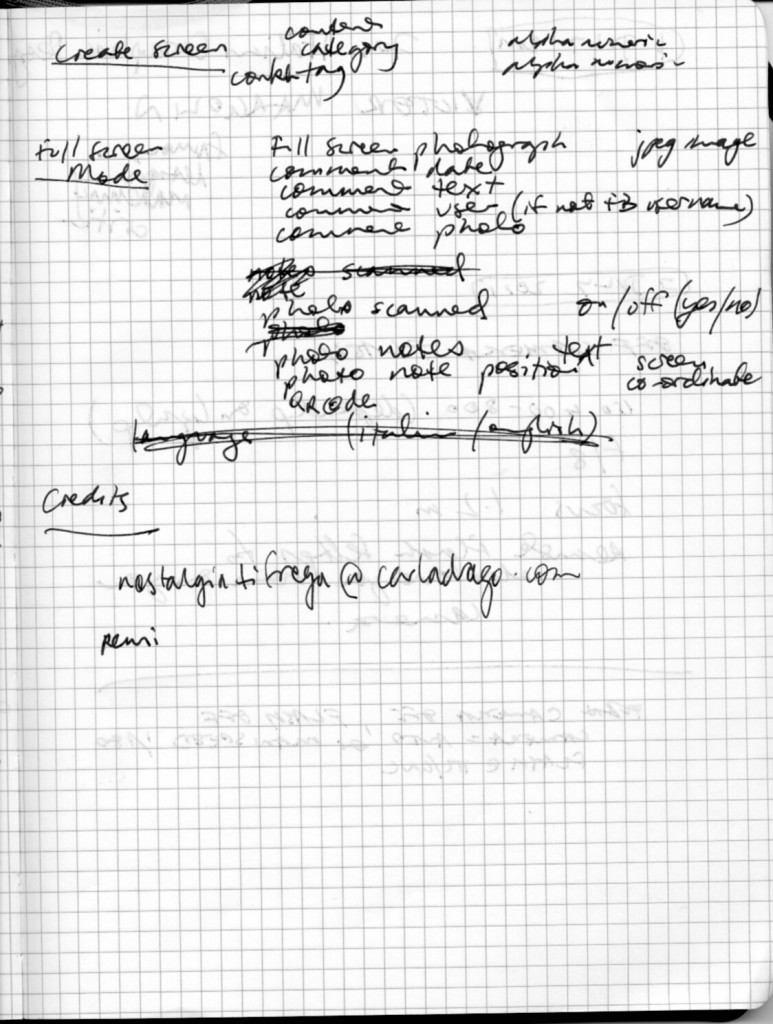 content
Create screen category alphanumeric
content tag alphanumeric
Full screen Full screen photograph jpeg image
Mode comment date
comment text
comment user (if not FB username)
comment photo
notes scanned
note
photo scanned on/off (yes/no)
photo
photo notes text
photo note position screen co-ordinate
QRCode
language (italian/english)
Credits
@carladrago.com